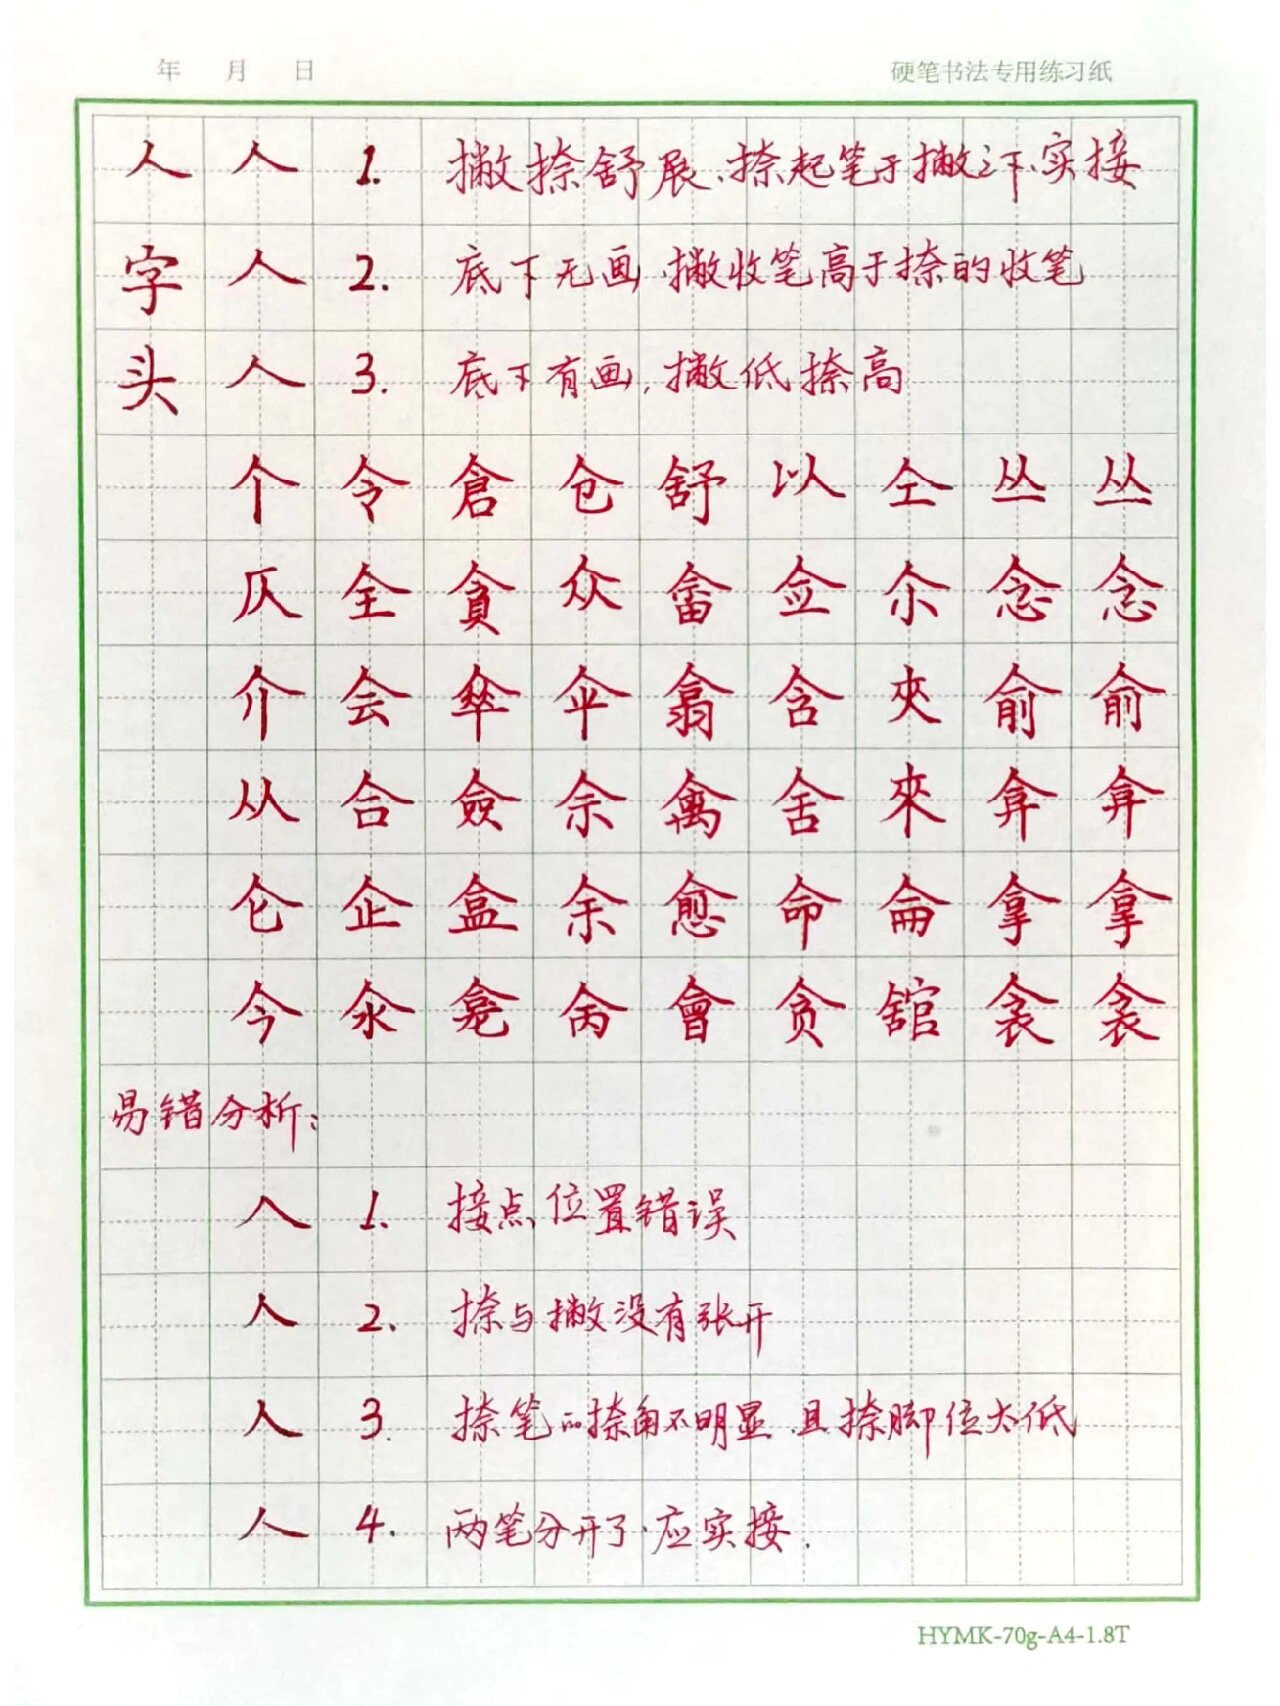 年 月 日 硬笔书法专用练习纸
人 人 1. 撇捺舒展、捺起笔于撇之下、实接
字 人 2. 底下无画,撇收笔高于捺的收笔
头 人 3. 底下有画,撇低捺高
个 令 倉 仓 舒 以 仝 丛 丛
仄 全 貪 众 畲 佥 尒 念 念
介 会 傘 伞 翕 含 夾 俞 俞
从 合 僉 佘 禽 舍 來 弇 弇
仑 企 盒 余 愈 命 侖 拿 拿
今 汆 龛 肏 會 贪 舘 衾 衾
易错分析:
人 1. 接点位置错误
人 2. 捺与撇没有张开
人 3. 捺笔的捺角不明显、且捺脚位太低
人 4. 两笔分开了、应实接.
HYMK-70g-A4-1.8T